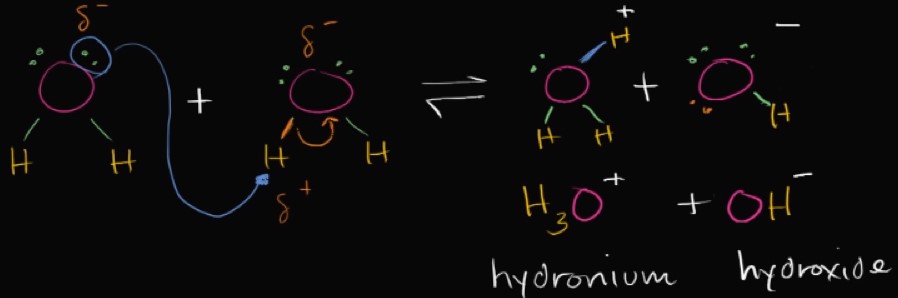 δ⁻ δ⁻
O + O ⇌ O H⁺ + O ⁻
H H H H H H H
δ⁺
H₃O⁺ + OH⁻
hydronium hydroxide